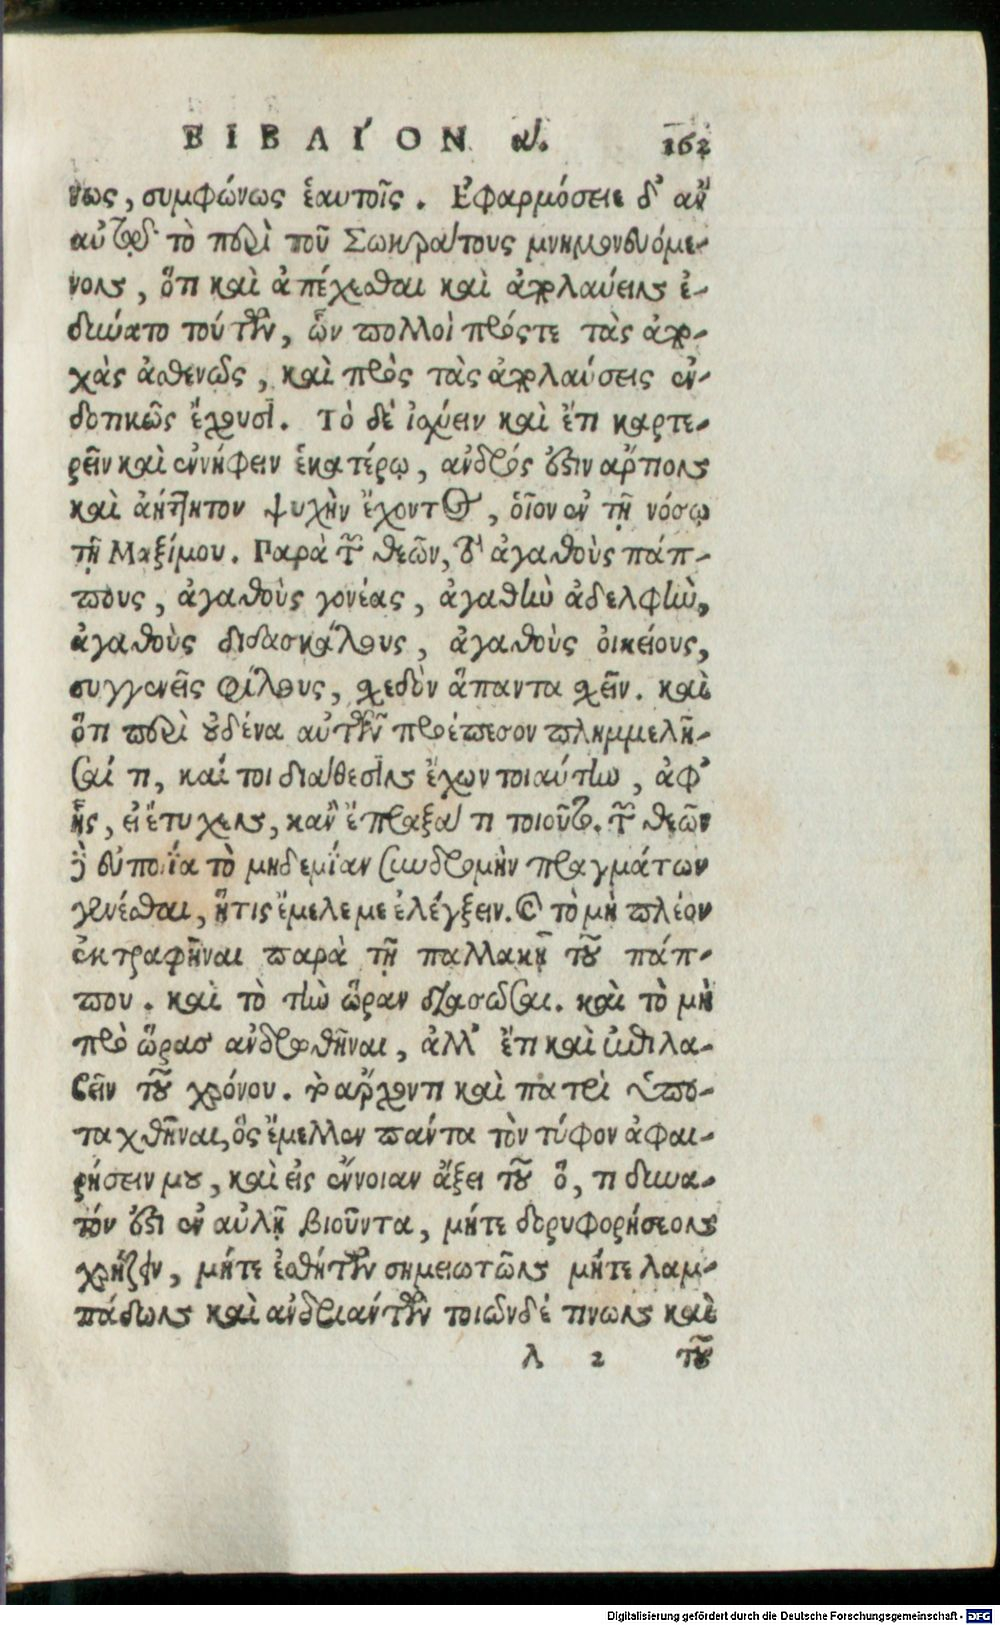 ΒΙΒΛΙ´ΟΝ α. 162
νως, συμφώνως ἑαυτοῖς. Ἐφαρμόσειε δ' ἂν
αὐτῷ τὸ περὶ τοῦ Σωκράτους μνημονευόμε-
νον, ὅτι καὶ ἀπέχεσθαι καὶ ἀπολαύειν ἐ-
δύνατο τούτων, ὧν πολλοὶ πρός τε τὰς ἀπο-
χὰς ἀσθενῶς, καὶ πρὸς τὰς ἀπολαύσεις ἐν-
δοτικῶς ἔχουσι. Τὸ δὲ ἰσχύειν καὶ ἔτι καρτε-
ρεῖν καὶ ἐννήφειν ἑκατέρῳ, ἀνδρός ἐστιν ἄρτιον
καὶ ἀήττητον ψυχὴν ἔχοντος, οἷον ἐν τῇ νόσῳ
τῇ Μαξίμου. Παρὰ τῶν θεῶν, τὸ ἀγαθοὺς πάπ-
πους, ἀγαθοὺς γονέας, ἀγαθὴν ἀδελφὴν,
ἀγαθοὺς διδασκάλους, ἀγαθοὺς οἰκείους,
συγγενεῖς φίλους, σχεδὸν ἅπαντα σχεῖν. καὶ
ὅτι περὶ οὐδένα αὐτῶν προέπεσον πλημμελῆ-
σαί τι, καί τοι διάθεσιν ἔχων τοιαύτην, ἀφ'
ἧς, εἰ ἔτυχεν, κἂν ἔπραξά τι τοιοῦτο. τῶν θεῶν
δὲ εὐποιΐα τὸ μηδεμίαν συνδρομὴν πραγμάτων
γενέσθαι, ἥτις ἔμελέ με ἐλέγξειν. καὶ τὸ μὴ πλέον
ἐκτραφῆναι παρὰ τῇ παλλακῇ τοῦ πάπ-
που. καὶ τὸ τὴν ὥραν διασῶσαι. καὶ τὸ μὴ
πρὸ ὥρας ἀνδρωθῆναι, ἀλλ' ἔτι καὶ ἐπιλα-
βεῖν τοῦ χρόνου. τὸ ἄρχοντι καὶ πατρὶ ὑπο-
ταχθῆναι, ὃς ἔμελλεν πάντα τὸν τύφον ἀφαι-
ρήσειν μου, καὶ εἰς ἔννοιαν ἄξει τοῦ ὅ, τι δυνα-
τόν ἐστι ἐν αὐλῇ βιοῦντα, μήτε δορυφορήσεων
χρῄζειν, μήτε ἐσθήτων σημειωτῶν μήτε λαμ-
πάδων καὶ ἀνδριάντων τοιῶνδέ τινων καὶ
λ 2 τοῦ
Digitalisierung gefördert durch die Deutsche Forschungsgemeinschaft - DFG